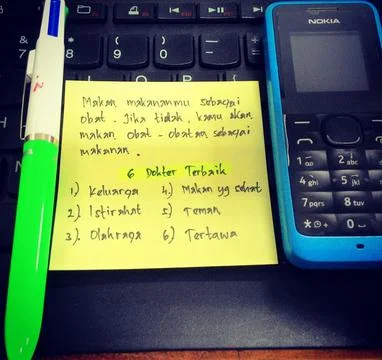 Pause
7
8
9
0
NOKIA
Makan makananmu sebagai
obat. Jika tidak, kamu akan
makan obat-obatan sebagai
makanan.
6 Dokter Terbaik
1) Keluarga 4) Makan yg sehat
2) Istirahat 5) Teman
3) Olahraga 6) Tertawa
1 2 abc 3
4 ghi 5 jkl
7 pqrs 8 tuv
* 0